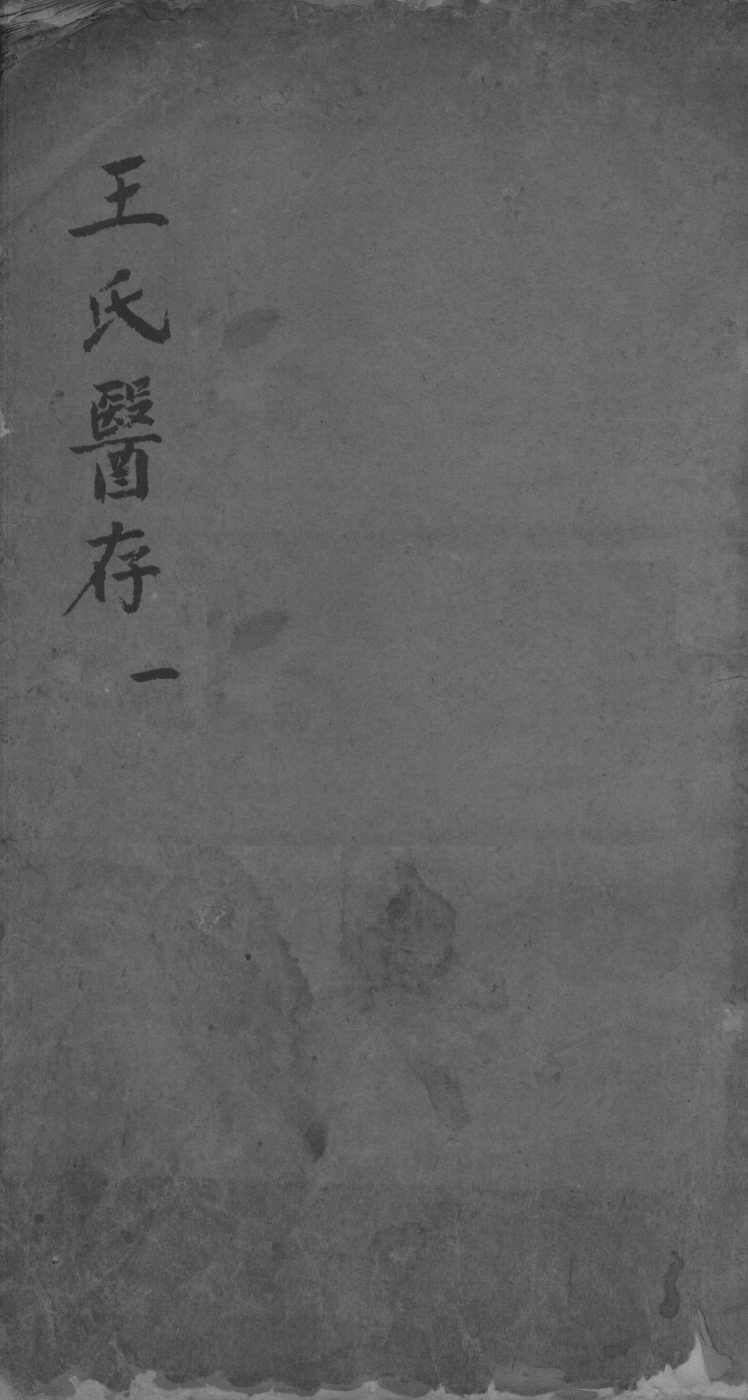 王氏醫存
一